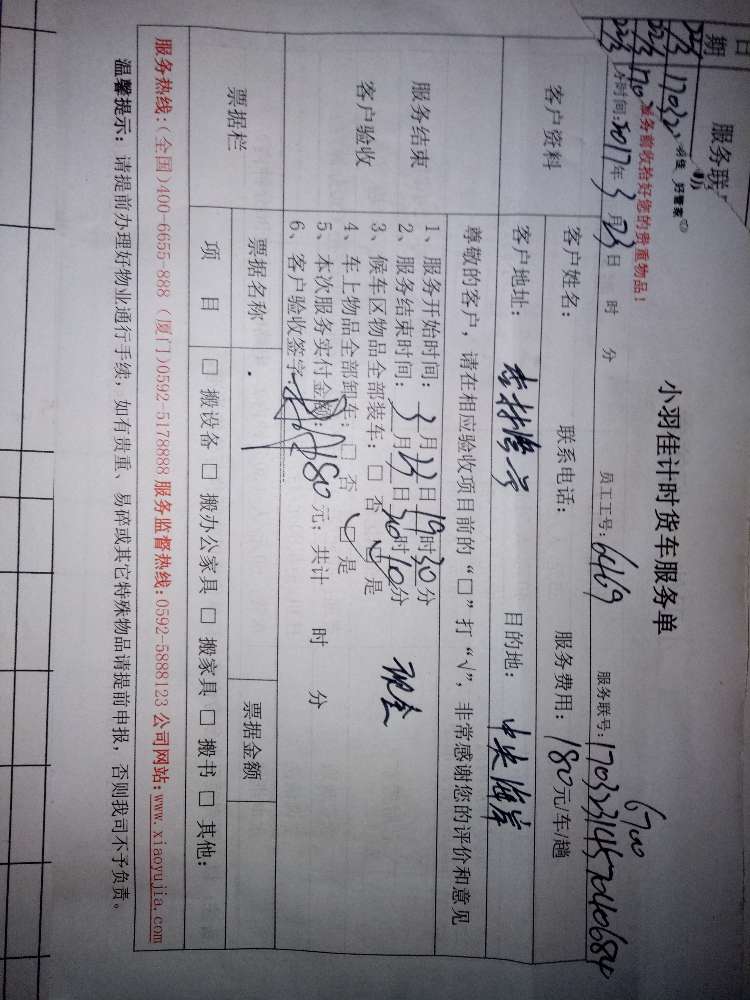 小羽佳计时货车服务单
服务前收拾好您的贵重物品！
员工工号：6469 服务联号：
6700
时间：2017年3月23日 时 分
客户资料
客户姓名： 联系电话： 服务费用：180元/车/趟
客户地址： 目的地：中央海岸
尊敬的客户，请在相应验收项目前的“□”打“√”，非常感谢您的评价和意见
服务结束
客户验收
1、服务开始时间：3月23日19时30分
2、服务结束时间：3月23日 时10分 现金
3、候车区物品全部装车：□ 否 □ 是
4、车上物品全部卸车：□ 否 □ 是
5、本次服务实付金额：180元；共计 时 分
6、客户验收签字：
票据栏
票据名称 票据金额
项 目 □ 搬设备 □ 搬办公家具 □ 搬家具 □ 搬书 □ 其他：
服务热线：(全国)400-6655-888 (厦门)0592-5178888 服务监督热线：0592-5888123 公司网站：www.xiaoyujia.com
温馨提示：请提前办理好物业通行手续，如有贵重、易碎或其它特殊物品请提前申报，否则我司不予负责。
日期
服务联
好管家